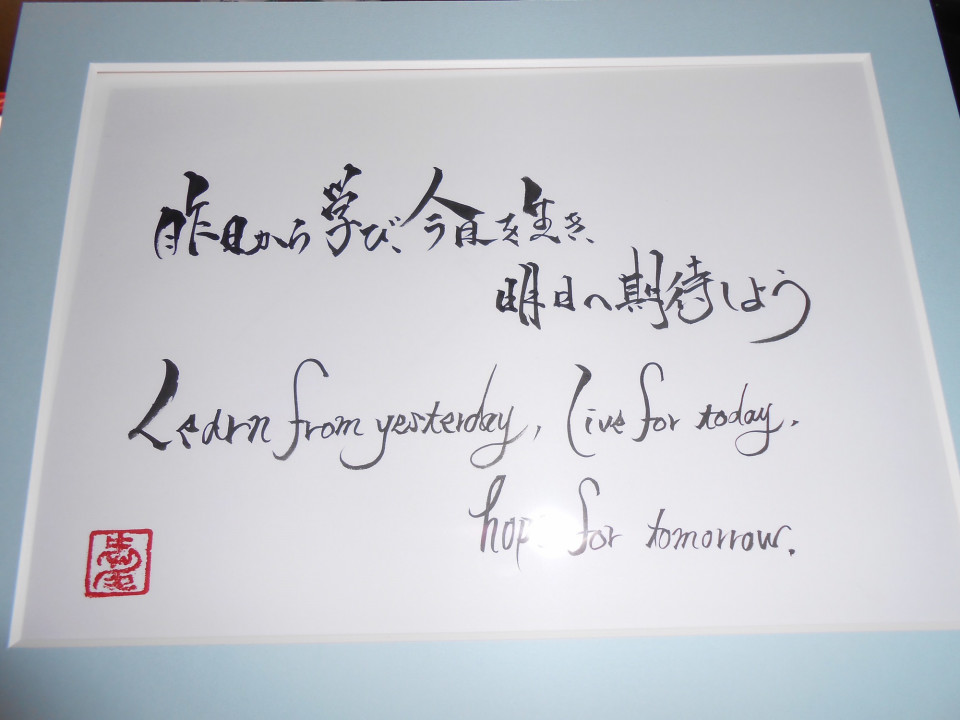 昨日から学び、今日を生き、
明日へ期待しよう
Learn from yesterday, live for today.
hope for tomorrow.